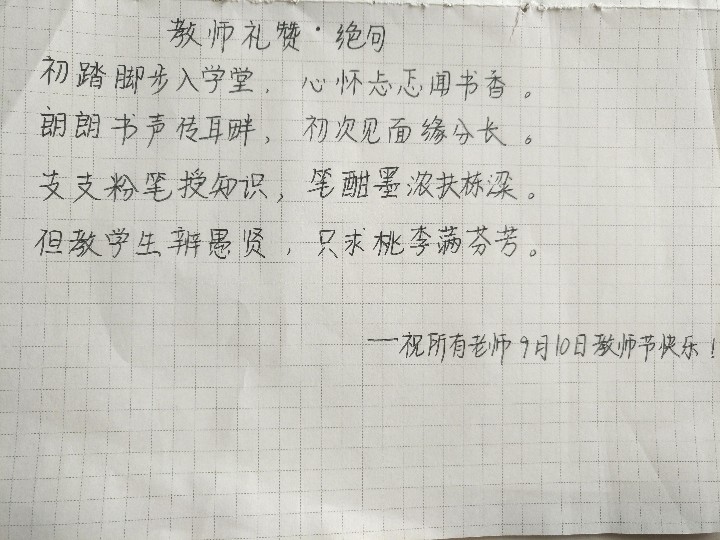 教师礼赞·绝句
初踏脚步入学堂，心怀忐忑闻书香。
朗朗书声传耳畔，初次见面缘分长。
支支粉笔授知识，笔酣墨浓扶栋梁。
但教学生辨愚贤，只求桃李满芬芳。
——祝所有老师9月10日教师节快乐！